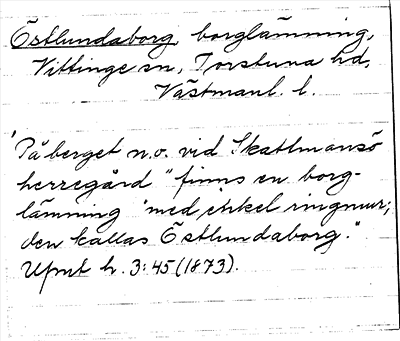 Östlundaborg, borglämning,
Vittinge sn, Torstuna hd,
Västmanl. l.
'På berget n.o. vid Skattmansö
herregård" finns en borg-
lämning "med enkel ringmur;
den kallas Östlundaborg."
Upmt h. 3:45 (1873).